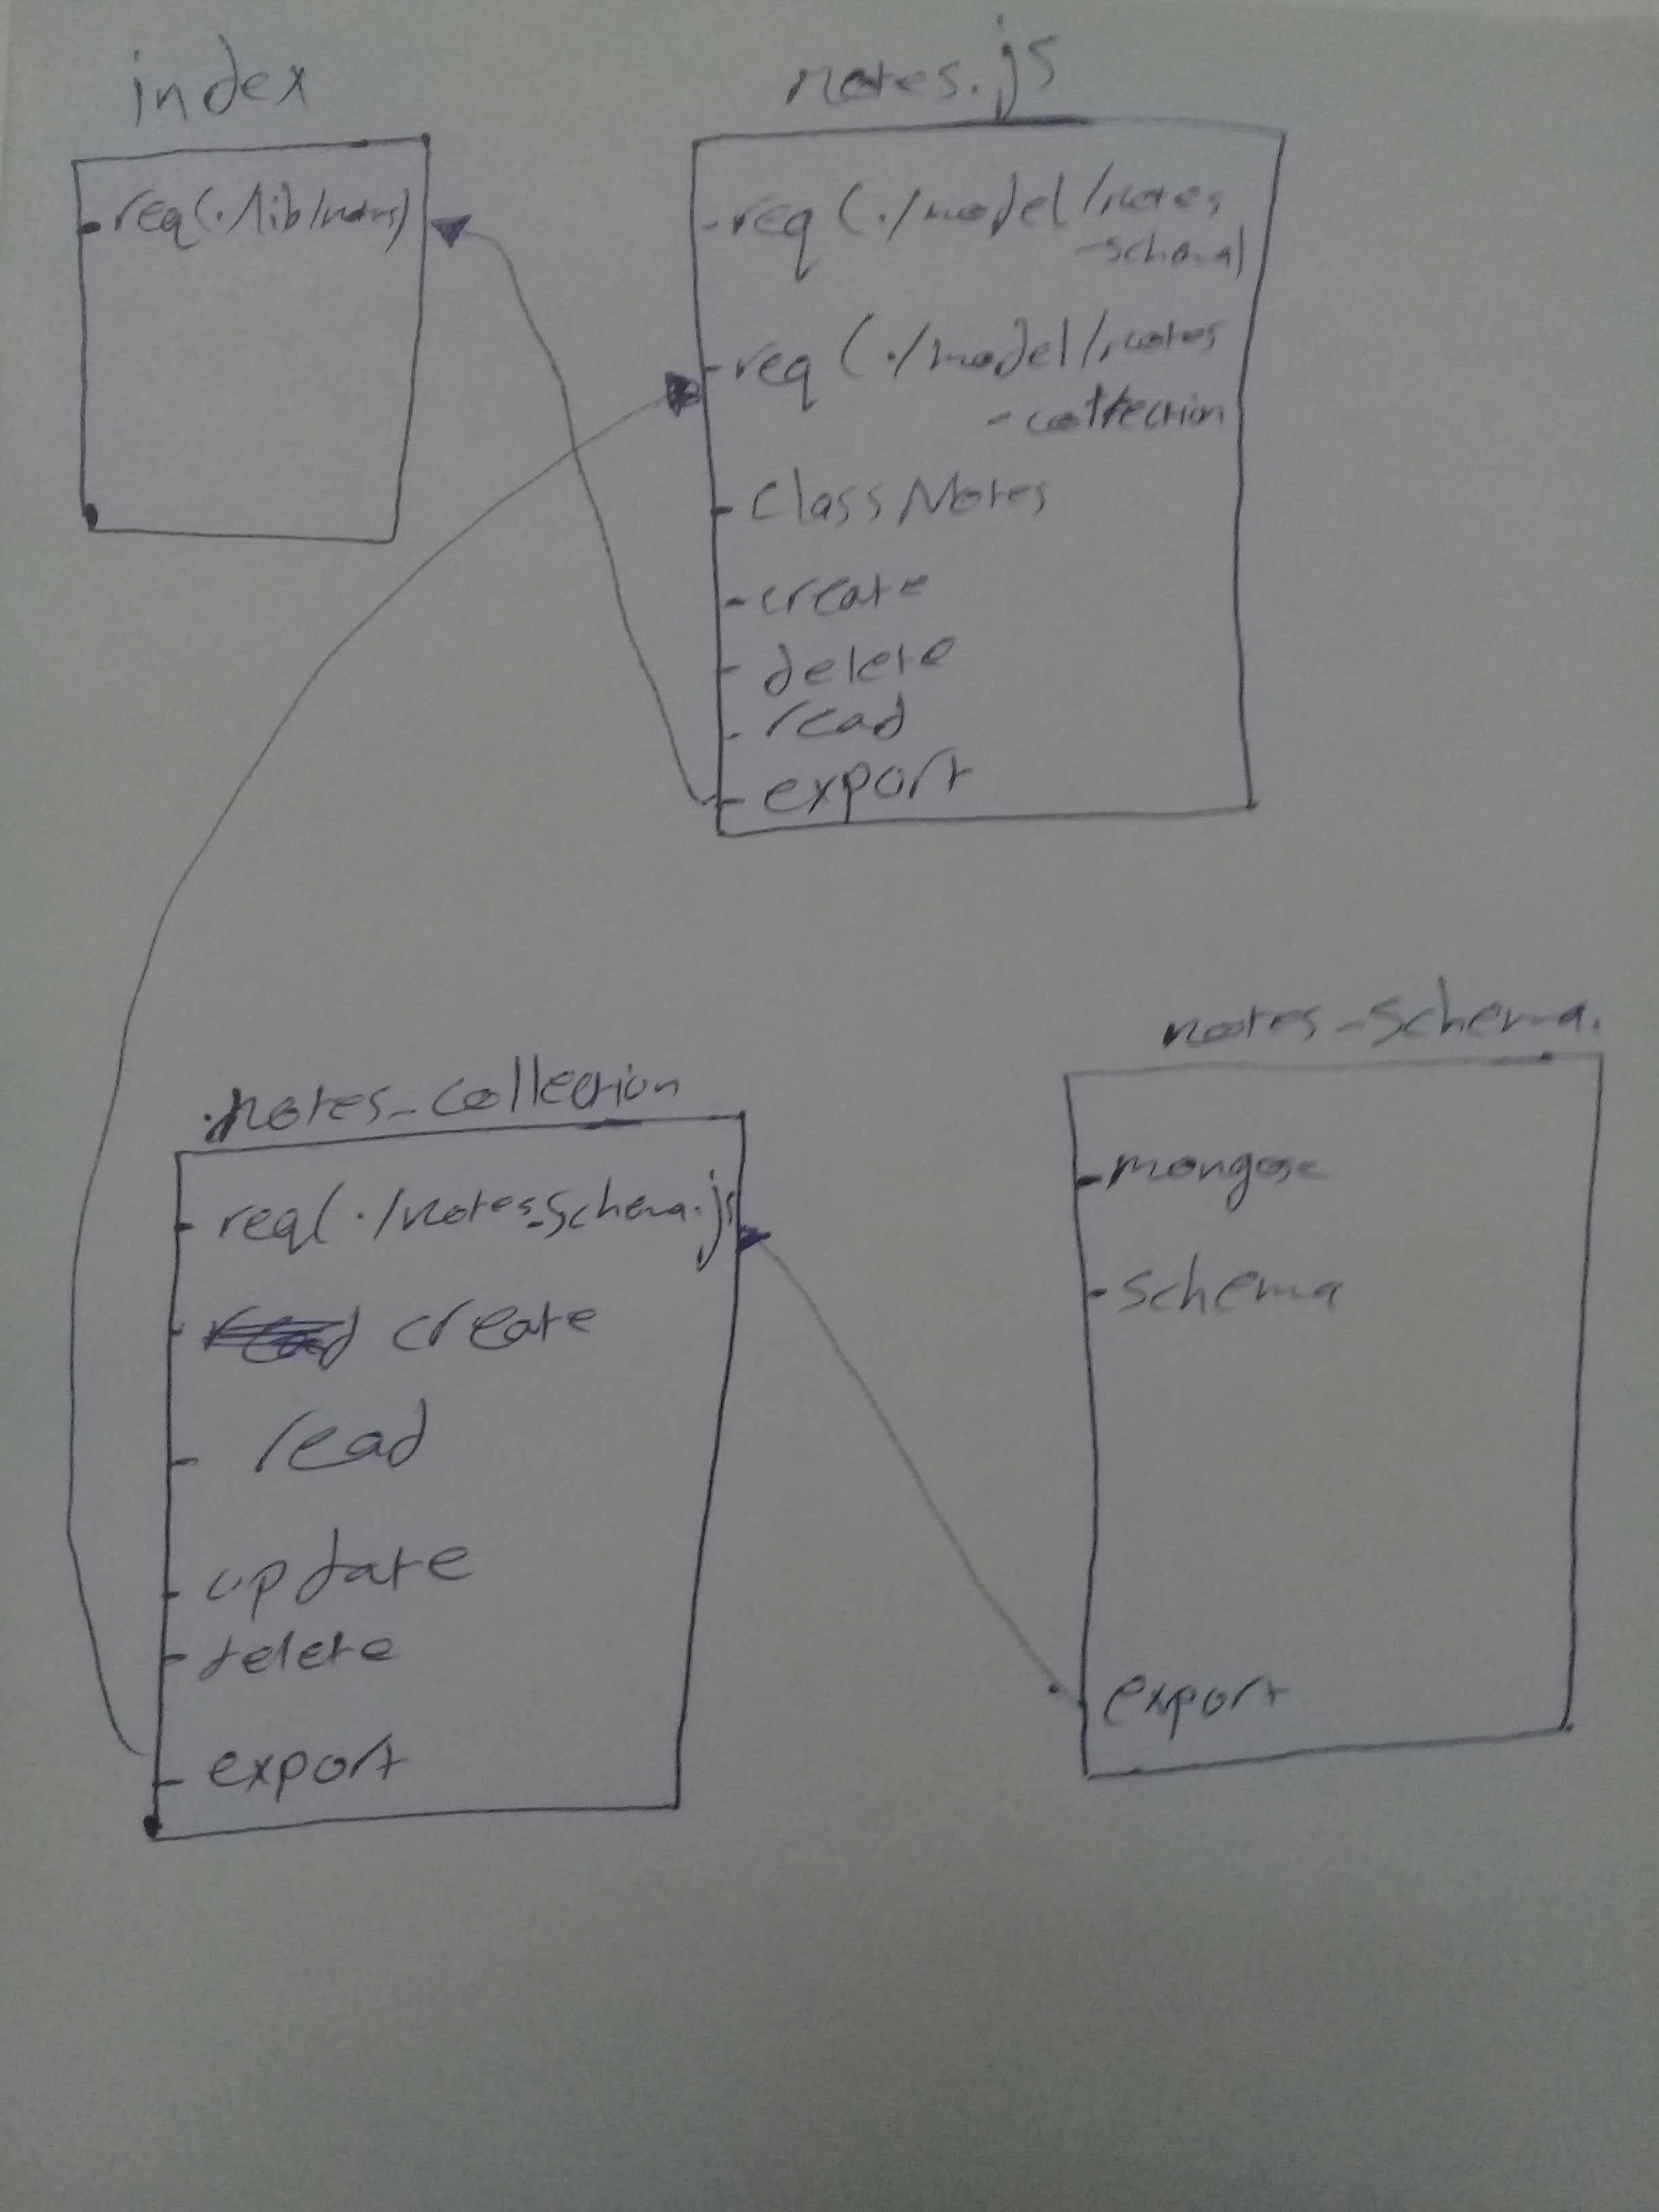 index
-req(./lib/notes)
notes.js
-req(./model/notes
-schema)
-req(./model/notes
-collection
-Class Notes
-create
-delete
-read
-export
notes-collection
-req(./notes-schema.js
-read create
-read
-update
-delete
-export
notes-schema.
-mongose
-schema
export